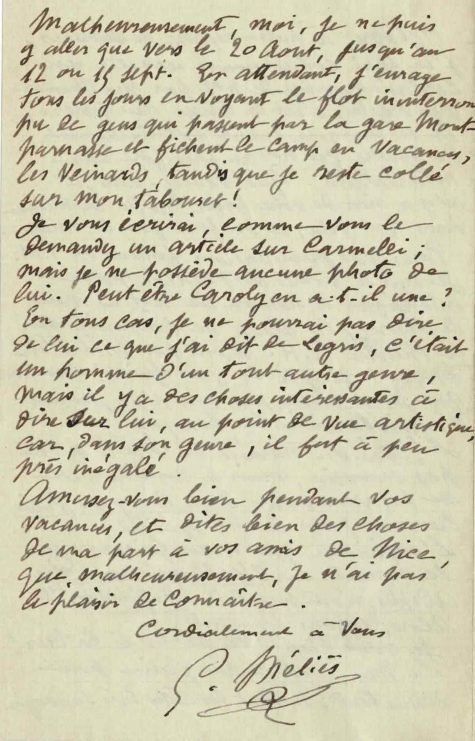 Malheureusement, moi, je ne puis
y aller que vers le 20 Aout, jusqu'au
12 ou 15 sept. En attendant, j'enrage
tous les jours en voyant le flot ininterrom
pu de gens qui passent par la gare Mont
parnasse et fichent le camp en vacances,
les veinards, tandis que je reste collé
sur mon tabouret !
Je vous écrirai, comme vous le
demandez un article sur Carmelli ;
mais je ne possède aucune photo de
lui. Peut être Caroly en a-t-il une ?
En tous cas, je ne pourrai pas dire
de lui ce que j'ai dit de Legris, c'était
un homme d'un tout autre genre,
mais il y a des choses interessantes à
dire sur lui, au point de vue artistique,
car, dans son genre, il fut à peu
près inégalé.
Amusez-vous bien pendant vos
vacances, et dites bien des choses
de ma part à vos amis de Nice,
que, malheureusement, je n'ai pas
le plaisir de connaître.
Cordialement à Vous
G. Méliès